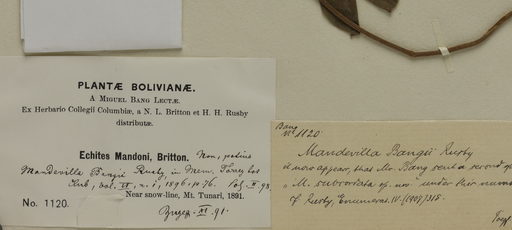 PLANTÆ BOLIVIANÆ.
A MIGUEL BANG LECTÆ.
Ex Herbario Collegii Columbiæ, a N. L. Britton et H. H. Rusby
distributæ.
Echites Mandoni, Britton. Non, potius
Mandevilla Bangii Rusby, in Mem. Torey bot
Club, vol. VI, n. 1, 1896. p 76.
Near snow-line, Mt. Tunari, 1891.
No. 1120.
Bang
No 1120.
Mandevilla Bangii Rusby
it now appear, that Mr. Bang sent a second sp.
M. subcordata sp. nov. under this number
cf Rusby, Enumeras. IV. (1907) 318.